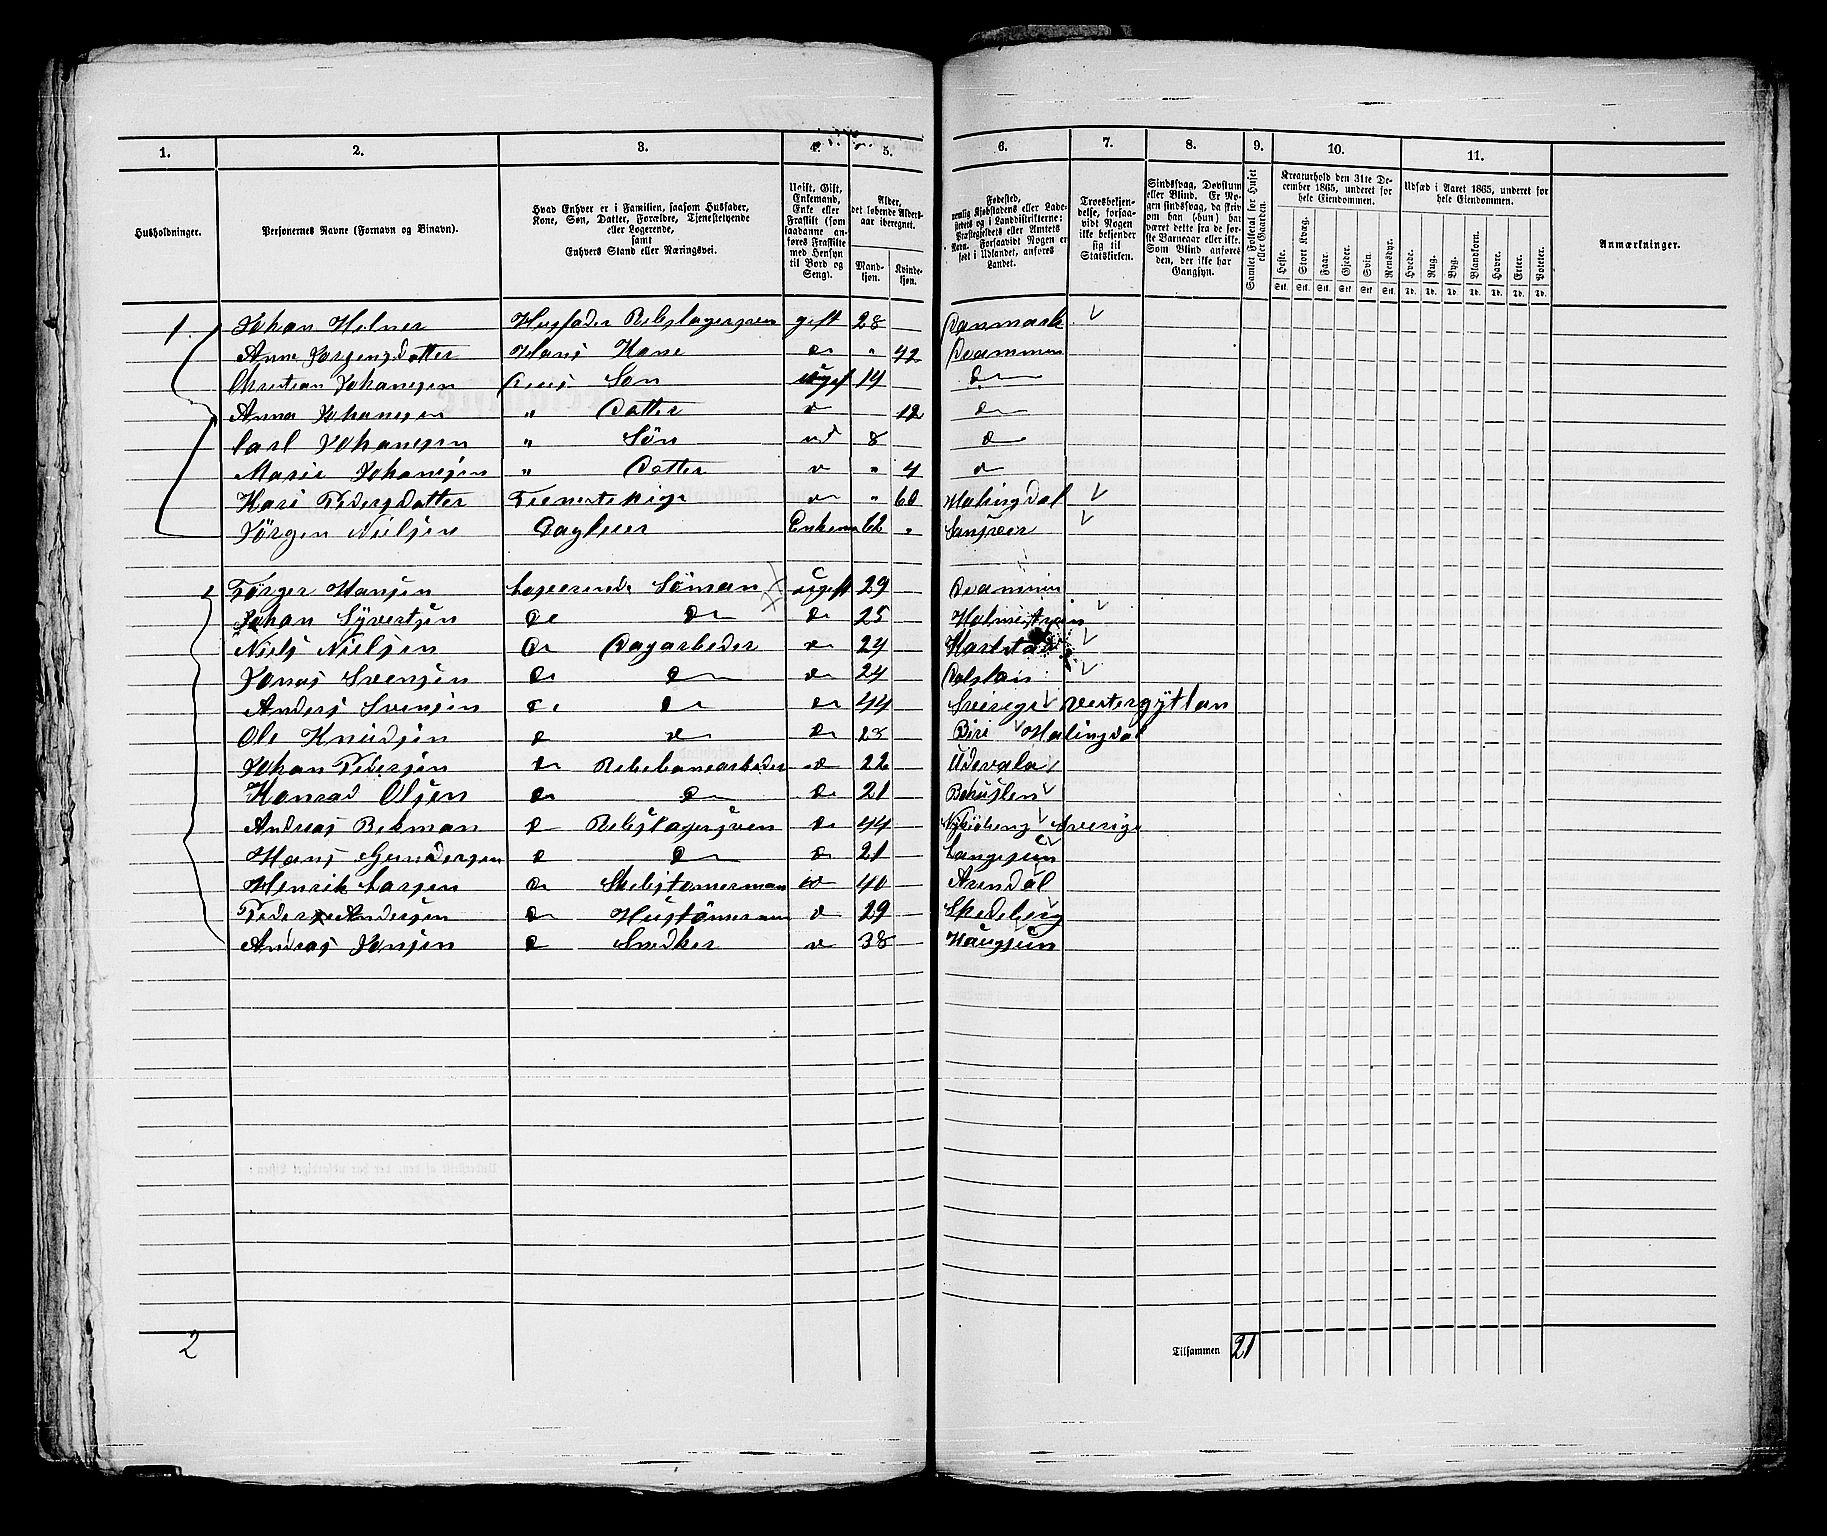 1. 2. 3. 4. 5. 6. 7. 8. 9. 10. 11.
Husholdninger.
Personernes Navne (Fornavn og Binavn).
Hvad Enhver er i Familien, saasom Husfader,
Kone, Søn, Datter, Forældre, Tjenestetyende
eller Logerende,
samt
Enhvers Stand eller Næringsvei.
Ugift, Gift,
Enkemand,
Enke eller
Fraskilt (som
saadanne an-
føres Fraskilte
med Hensyn
til Bord og
Seng).
Alder,
det løbende Alders-
aar iberegnet.
Mand-
kjøn.
Kvinde-
kjøn.
Fødested,
nemlig Kjøbstadens eller Lade-
stedets og i Landdistrikterne:
Præstegjeldets eller Amtets
Navn. Forsaavidt Nogen er
født i Udlandet, anføres
Landet.
Troesbekjen-
delse, forsaa-
vidt Nogen
ikke bekjender
sig til
Statskirken.
Sindssvag, Døvstum
eller Blind. Er No-
gen sindssvag, da skri-
ves om han (hun) har
været dette fra de før-
ste Barneaar eller ikke.
Som Blind anføres
den, der ikke har
Gangsyn.
Samlet Folketal for Huset
eller Gaarden.
Kreaturhold den 31te De-
cember 1865, underet for
hele Eiendommen.
Heste. Stort Kvæg. Faar. Gjeder. Svin. Rensdyr.
Stk. Stk. Stk. Stk. Stk. Stk.
Udsæd i Aaret 1865, underet for
hele Eiendommen.
Hvede. Rug. Byg. Blandkorn. Havre. Erter. Poteter.
Td. Td. Td. Td. Td. Td. Td.
Anmærkninger.
1. Johan Holner Husfader Rebslagersven gift 28 Danmark
Anne Jørgensdatter Hans Kone do " 42 Drammen
Christian Johansen Deres Son ugift 14 do
Anna Johansen " Datter do 12 do
Carl Johansen " Søn do 8 do
Marie Johansen " Datter do " 4 do
Kari Pedersdatter Tienestepige do " 60 Halingdal
Jørgen Nielsen Dagleier Enkem 62 "
2 Tørger Hansen Logerende Söman ugift 29 Drammen
Johan Syvertsen do do do 25 Holmestrand
Niels Nielsen do Dagarbeder do 24 Karlstad
Jonas Svensen do do do 24 Dalsland
Anders Svensen do do do 44 Sverige Vestergytlan
Ole Knudsen do do do 23 Halingdal
Johan Pedersen do Rebebanearbeder do 22 Udevala
Konrad Olsen do do do 21 Bohuslen
Andreas Bekman do Rebslagersven do 44 Nykiöbeng Sverige
Hans Gundersen do do do 21 Langesun
Henrik Larsen do Skibstömerman do 40 Arendal
Peder Andersen do Hustömerman do 29 Skedeberg
Andreas Jonsen do Snedker do 38 Haugsun
2 Tilsammen 21